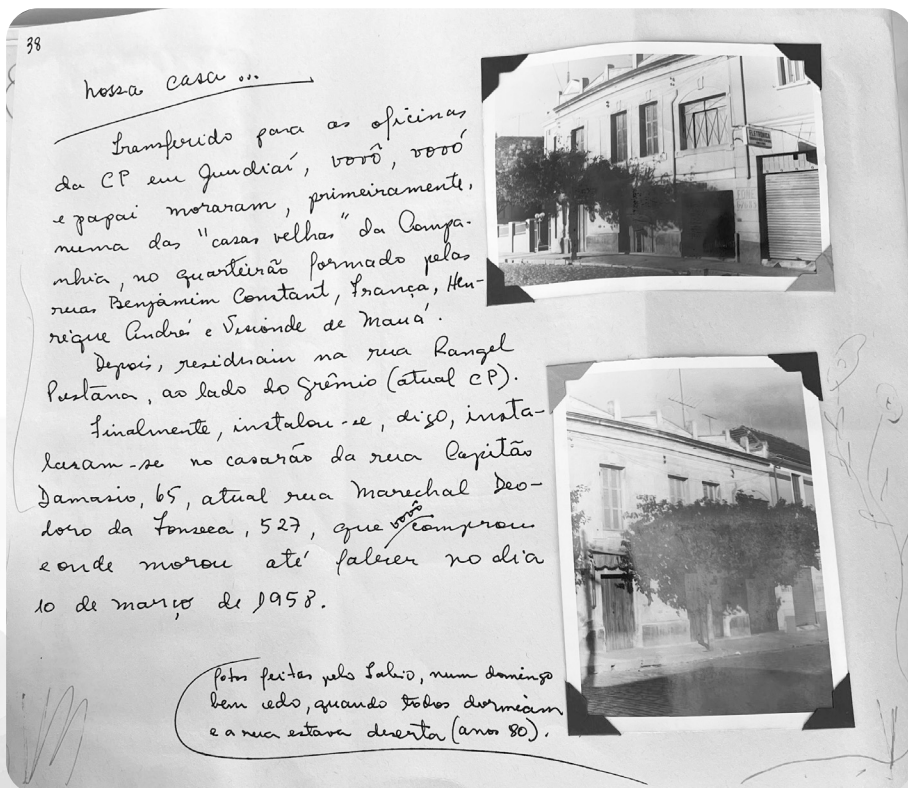 38
nossa casa ...
Transferido para as oficinas
da CP em Jundiaí, vovô, vovó
e papai moraram, primeiramente,
numa das "casas velhas" da Compa-
nhia, no quarteirão formado pelas
ruas Benjamim Constant, França, Hen-
rique Andrés e Visconde de Mauá.
Depois, residiram na rua Rangel
Pestana, ao lado do Grêmio (atual CP).
Finalmente, instalou-se, digo, insta-
laram-se no casarão da rua Capitão
Damasio, 65, atual rua Marechal Deo-
doro da Fonseca, 527, que vovô comprou
e onde morou até falecer no dia
10 de março de 1958.
fotos feitas pelo, num domingo
bem cedo, quando todos dormiam
e a rua estava deserta (anos 80).
ELETRÔNICA